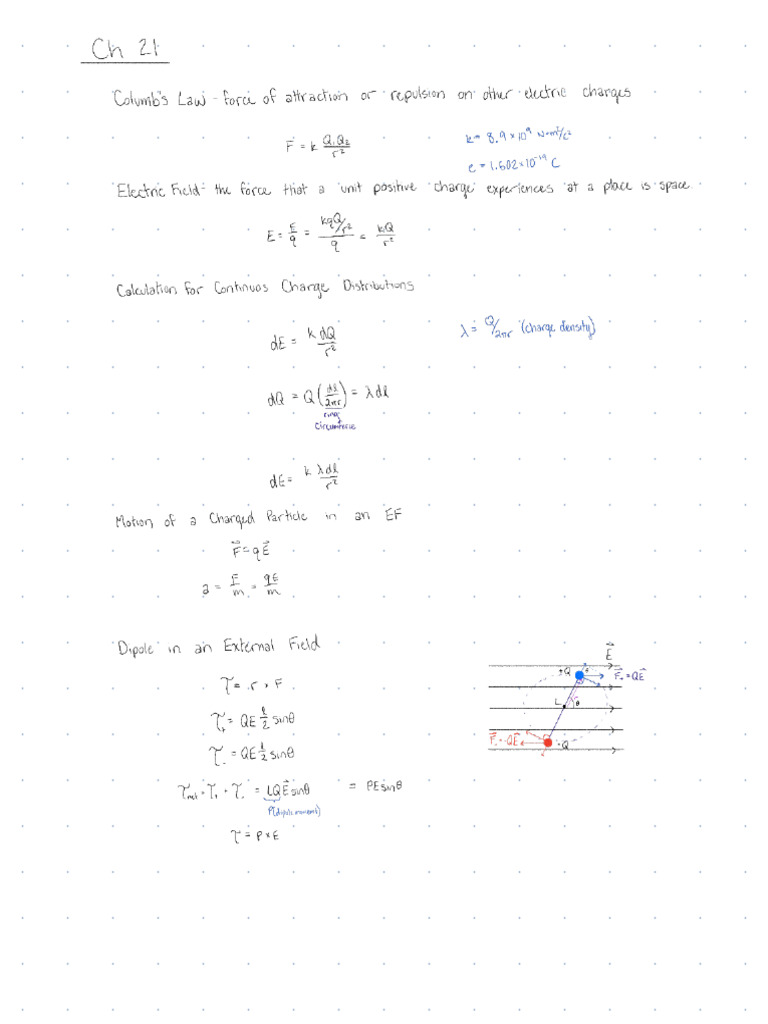 Ch 21
Columb's Law - force of attraction or repulsion on other electric charges
F = k Q₁Q₂/r²
k = 8.9 × 10⁹ N·m²/C²
e = 1.602 × 10⁻¹⁹ C
Electric Field - the force that a unit positive charge experiences at a place is space.
E = F/q = (kqQ/r²)/q = kQ/r²
Calculation for Continuos Charge Distributions
dE = k dQ/r²
λ = Q/2πr (charge density)
dQ = Q (dl/2πr) = λdl
ring
circumference
dE = k λdl/r²
Motion of a Charged Particle in an EF
F⃗ = qE⃗
a = F/m = qE/m
Dipole in an External Field
E⃗
+Q
F⃗₊ = QE⃗
L
θ
F⃗₋ = -QE⃗
-Q
τ = r × F
τ₊ = QE l/2 sinθ
τ₋ = QE l/2 sinθ
τnet = τ₊ + τ₋ = LQE⃗ sinθ = PE sinθ
P(dipole moment)
τ = P × E